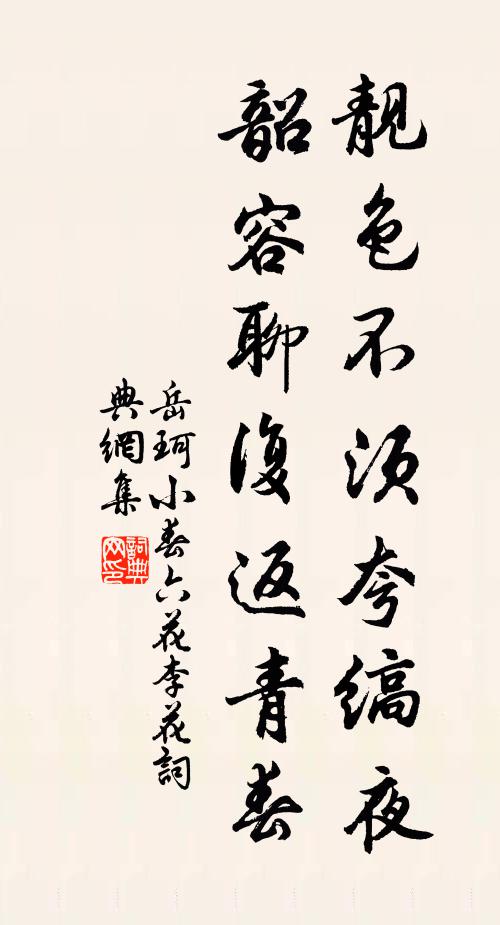 靚色不須夸縞夜
韶容聊復返青春
岳珂小春六花李花詞
典網集
詞典網印